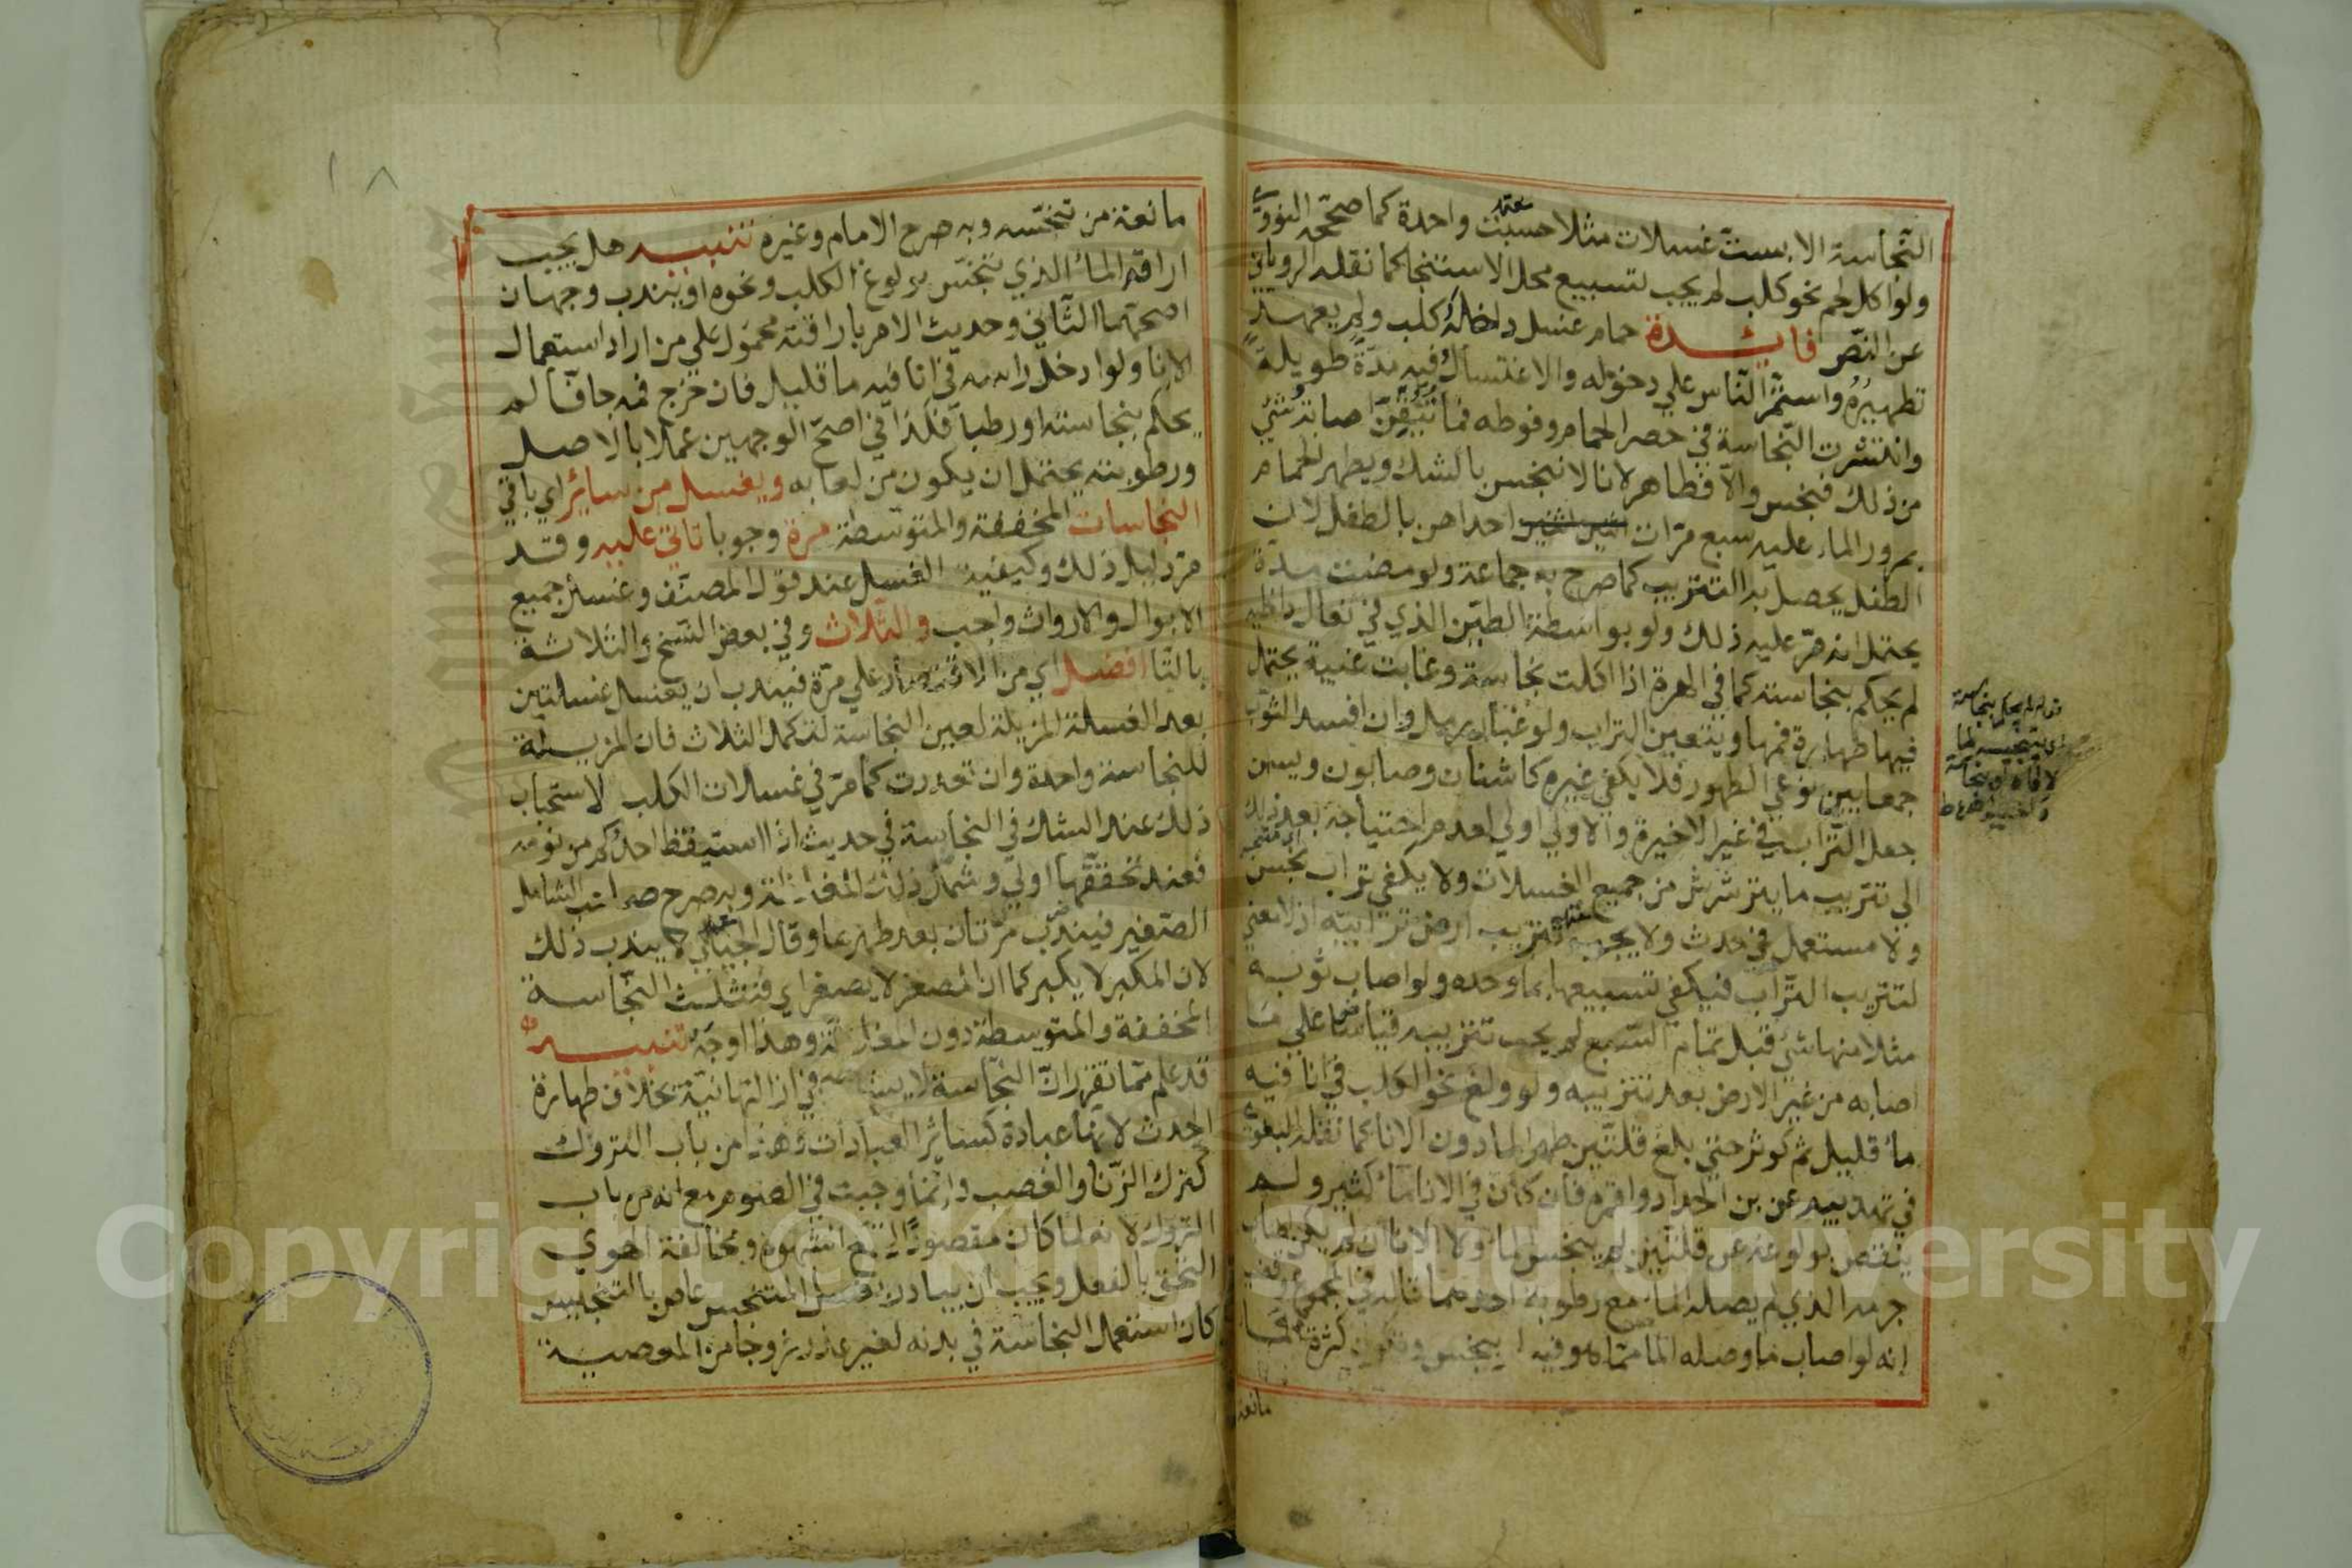 النجاسة الا بست غسلات مثلا حسبت واحدة كما صححه النووي
ولو اكل لحم نحو كلب لم يجب تسبيع محل الاستنجا كما نقله الروياني
عن النص فائدة حمام غسل داخله كلب ولم يعهد
تطهيره واستمر الناس علي دخوله والاغتسال فيه مدة طويلة
وانتشرت النجاسة في حصر الحمام وفوطه فما تيقن اصابة شئ
من ذلك فنجس والا فطاهر لانا لا ننجس بالشك ويطهر الحمام
بمرور الماء عليه سبع مرات احداهن بالطفل لان
الطفل يحصل به التتريب كما صرح به جماعة ولو مضت مدة
يحتمل انه مر عليه ذلك ولو بواسطة الطين الذي في نعال داخليه
لم يحكم بنجاسته كما في الهرة اذا اكلت نجاسة وغابت غيبة يحتمل
فيها طهارة فمها ويتعين التراب ولو غبار رمل وان افسد الثوب
جمعا بين نوعي الطهور فلا يكفي غيره كاشنان وصابون ويسن
جعل التراب في غير الاخيرة والاولي اولي لعدم احتياجه بعد ذلك
الي تتريب ما يترشرش من جميع الغسلات ولا يكفي تراب نجس
ولا مستعمل في حدث ولا يجب تتريب ارض ترابية اذ لا معني
لتتريب التراب فيكفي تسبيعها بما وحده ولو اصاب ثوبه
مثلا منها شئ قبل تمام السبع لم يجب تتريبه قياسا علي ما
اصابه من غير الارض بعد تتريبه ولو ولغ نحو الكلب في انا فيه
مائ قليل ثم كوثر حتي بلغ قلتين طهر الما دون الانا كما نقله البغوي
في تهذيبه عن بن الحداد واقره فان كان في الانا مائ كثير ولم
ينقص بولوغه عن قلتين لم ينجس الما ولا الانا ان لم يكن اصاب
جرمه الذي لم يصله الما مع رطوبة احدهما قاله في المجموع
انه لو اصاب ما وصله الما مما هو فيه لم ينجس وتكون كثرة الما
مانعة
مانعة من تنجسه وبه صرح الامام وغيره تنبيه هل يجب
اراقة المائ الذي تنجس بولوغ الكلب ونحوه او يندب وجهان
اصحهما الثاني وحديث الامر باراقته محمول علي من اراد استعمال
الانا ولو ادخل راسه في انا فيه ما قليل فان خرج فمه جافا لم
يحكم بنجاسته او رطبا فكذا في اصح الوجهين عملا بالاصل
ورطوبته يحتمل ان يكون من لعابه ويغسل من سائر اي باقي
النجاسات المخففة والمتوسطة مرة وجوبا تاتي عليه وقد
مر دليل ذلك وكيفية الغسل عند قول المصنف وغسل جميع
الابوال والارواث واجب والثلاث وفي بعض النسخ والثلاثة
بالتا افضل اي من الاقتصار علي مرة فيندب ان يغسل غسلتين
بعد الغسلة المزيلة لعين النجاسة لتكمل الثلاث فان المزيلة
للنجاسة واحدة وان تعددت كما مر في غسلات الكلب لاستحباب
ذلك عند الشك في النجاسة في حديث اذا استيقظ احدكم من نومه
فعند تحققها اولي وشمل ذلك المغلظة وبه صرح صاحب الشامل
الصغير فيندب مرتان بعد طهرها وقال الجيلي لا يندب ذلك
لان المكبر لا يكبر كما ان المصغر لا يصغر اي فتثليث النجاسة
المخففة والمتوسطة دون المغلظة وهذا اوجه تنبيه
قد علم مما تقرر ان النجاسة لا يشترط في ازالتها نية بخلاف طهارة
الحدث لانها عبادة كسائر العبادات وهذا من باب التروك
كترك الزنا والغصب وانما وجبت في الصوم مع انه من باب
التروك لانه لما كان مقصودا لقمع الشهوة ومخالفة الهوي
التحق بالفعل ويجب ان يبادر بغسل المتنجس عاص بالتنجيس
كان استعمل النجاسة في بدنه لغير عذر خروجا من المعصية
Copyright © King Saud University